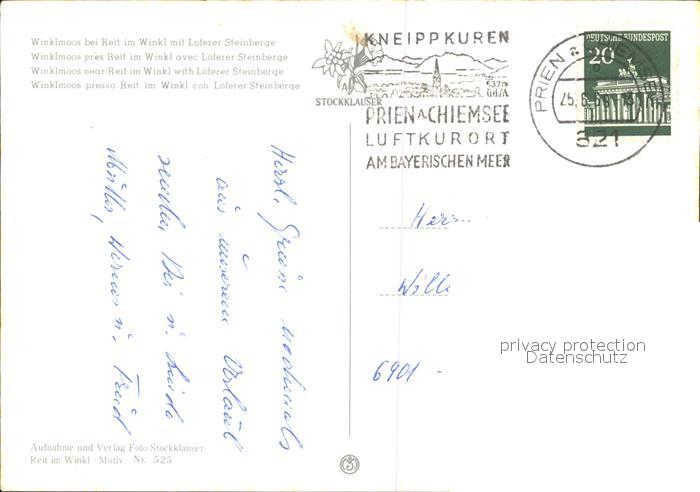 Winklmoos bei Reit im Winkl mit Loferer Steinberge
Winklmoos près Reit im Winkl avec Loferer Steinberge
Winklmoos near Reit im Winkl with Loferer Steinberge
Winklmoos presso Reit im Winkl con Loferer Steinberge
STOCKKLAUSER
KNEIPPKUREN
PRIEN A. CHIEMSEE
LUFTKURORT
AM BAYERISCHEN MEER
PRIEN a.
821
DEUTSCHE BUNDESPOST
20
Herzl. Grüsse nochmals
aus unserem Urlaub
Herrn
Willi
6901 -
privacy protection
Datenschutz
Aufnahme und Verlag Foto Stockklauser
Reit im Winkl - Motiv. Nr. 525